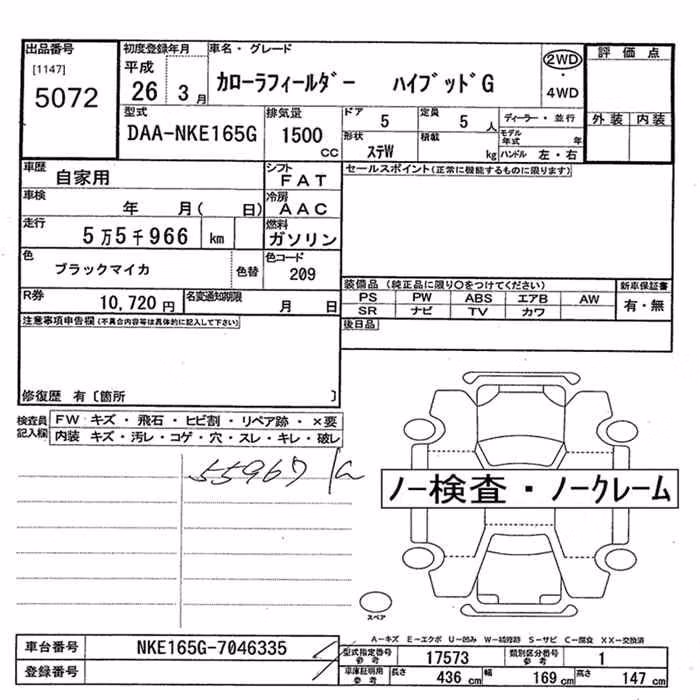 出品番号
[1147]
5072
初度登録年月
平成
26 3月
車名・グレード
カローラフィールダー ハイブッドG
2WD
・
4WD
評価点
外装 内装
型式
DAA-NKE165G
排気量
1500
CC
ドア
5
定員
5 人
ディーラー・並行
モデル年式 年
形状
ステW
積載
kg
ハンドル 左・右
車歴
自家用
シフト
FAT
セールスポイント(正常に機能するものに限ります)
車検
年 月( 日)
冷房
AAC
走行
5万5千966 km
燃料
ガソリン
色
ブラックマイカ
色替
色コード
209
R券
10,720 円
名変通知期限
月 日
装備品 (純正品に限り○をつけてください)
PS PW ABS エアB AW
SR ナビ TV カワ
新車保証書
有・無
後日品
注意事項申告欄(不具合内容等は具体的に記入して下さい)
修復歴 有〔箇所 〕
検査員
記入欄
FW キズ・飛石・ヒビ割・リペア跡・×要
内装 キズ・汚レ・コゲ・穴・スレ・キレ・破レ
55967
ノー検査・ノークレーム
スペア
A-キズ E-エクボ U-凹み W-補修跡 S-サビ C-腐食 XX-交換済
車台番号
NKE165G-7046335
登録番号
型式指定番号
参考
17573
類別区分番号
参考
1
車庫証明用
参考
長さ 436 cm 幅 169 cm 高さ 147 cm